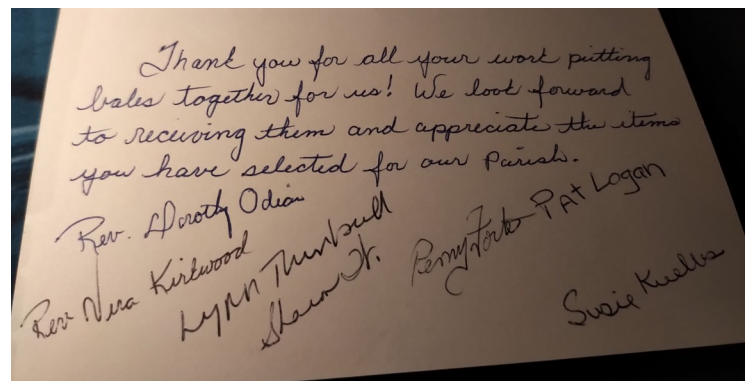 Thank you for all your work putting
bales together for us! We look forward
to receiving them and appreciate the items
you have selected for our Parish.
Rev. Dorothy Odian
Rev. Vera Kirkwood
Lynn Turnbull
Sharon H.
Penny PAt Logan
Susie